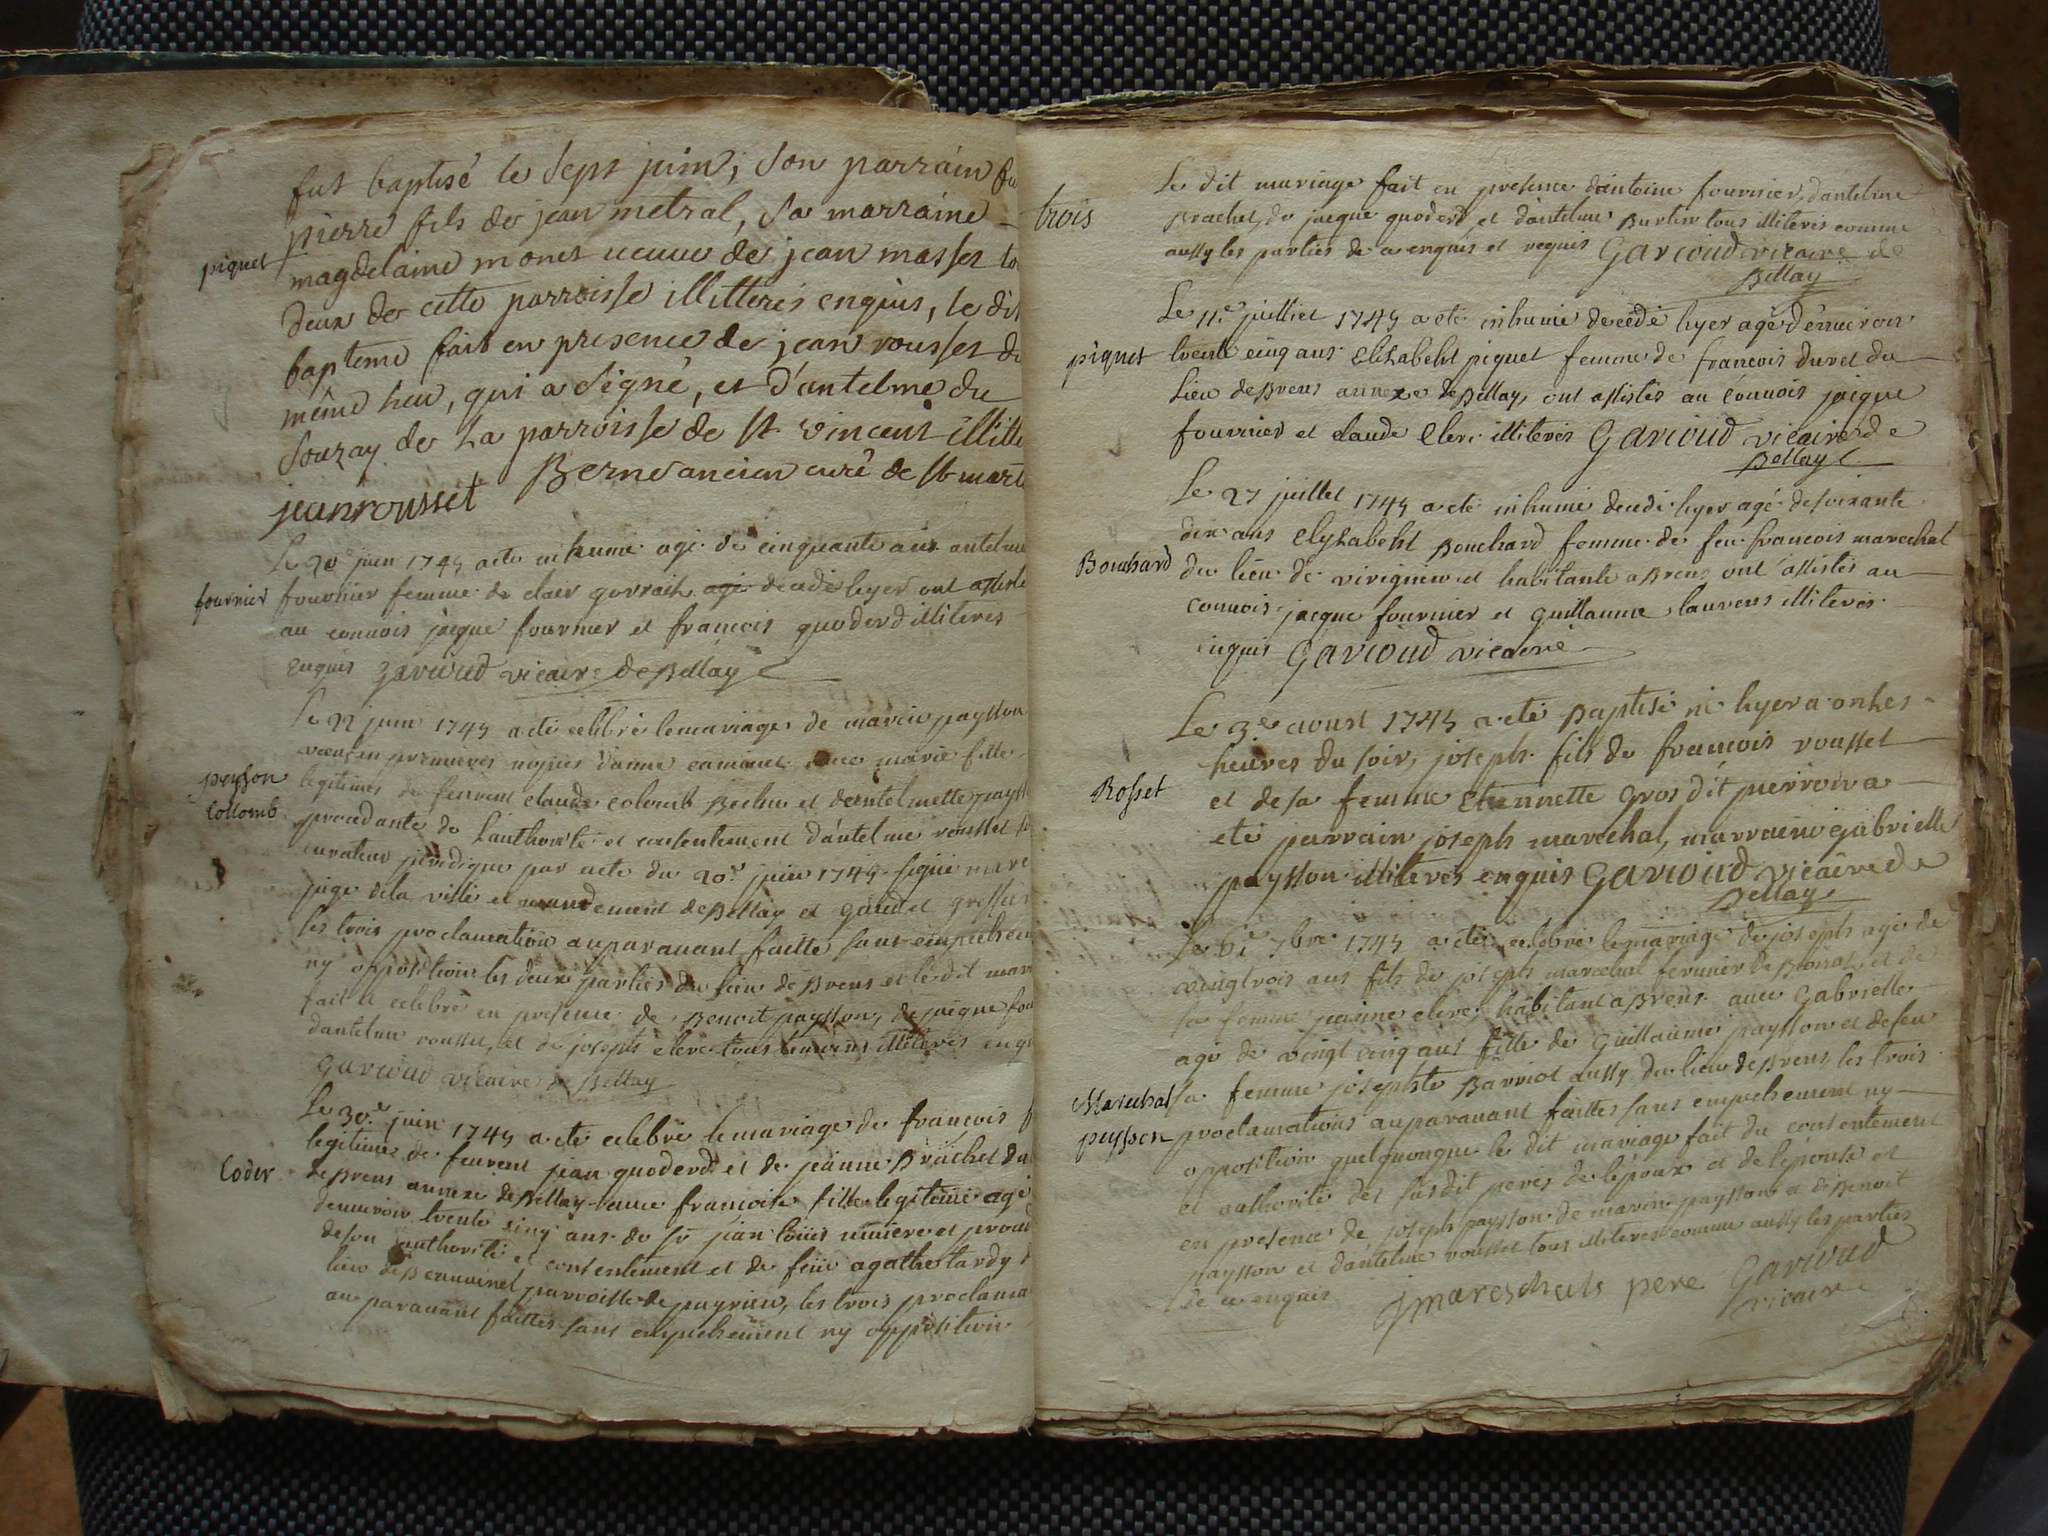 fut baptisé le sept juin, son parrain fu
pierre fils de jean metral, sa marraine
piquet
magdelaine monet veuve de jean masset to
deux de cette parroisse illitterés enquis, le dit
bapteme fait en presence de jean rousset du
même lieu, qui a signé, et d'antelme du
souzay de la parroisse de st vincent illitte
jeanrousset Berne ancien curé de st mart
Le juin 1745 a ete inhumé agé de cinquante ans antelme
fournier
fournier femme de clair gorrath agé decedé hyer ont assisté
au convois jacque fournier et francois quoderd illiteres
enquis gavioud vicaire de Bellay
Le juin 1745 a eté celebré le mariage de marin paysson
en premieres nopces avec marie fille
peysson
Collomb
legitime de feuvent claude colomb et dantelmette payss
procedante de l'authorité et consentement d'antelme rousset
curateur par acte du 20e juin 1745 signé mare
juge de la ville et mandement de Bellay et
les trois proclamation auparavant faitte sans empechem
ny opposition les deux parties du lieu de Brens et le dit mari
fait et celebré en presence de Benoit paysson, de jacque fou
dantelme rousset, et de joseph clerc tous temoins illiterés enqu
Gavioud vicaire de Bellay
Le 30e juin 1745 a eté celebré le mariage de francois f
legitimes de feuvent jean quoderd et de jeanne Brachet du
Coder
de Brens annexe de Bellay avec francoise fille legitime agé
denviron trente cinq ans de sr jean louis et proced
de son authorité et consentement et de feüe agathe tardy
lieu de parroisse de peyrieu, les trois proclama
au paravant faittes sans empechement ny opposition
Le dit mariage fait en presence dantoine fournier, dantelme
trois
Brachet, de jacque quoderd et dantelme Burtin tous illiterés comme
aussy les parties de a enquis et requis Gavioud vicaire de
Bellay
Le 11e juillet 1745 a eté inhumé decedé hyer agé denviron
piquet
trente cinq ans Elizabeht piquet femme de francois duret du
lieu de Brens annexe de Bellay, ont assistés au convois jacque
fournier et claude Clerc illiterés Gavioud vicaire de
Bellay
Le 27 juillet 1745 a eté inhumé decedé hyer agé de soixante
dix ans Elyzabeht Bouchard femme de feu francois marechal
Bouchard
du lieu de virignin et habitante a Brens ont assistés au
convois jacque fournier et guillaume laurens illiterés
enquis Gavioud vicairie
Le 3e aoust 1745 a eté Baptisé né hyer a onhes
heures du soir, joseph fils de francois rousset
Rosset
et de sa femme Etiennette Gros dit pierroix a
eté parrain joseph marechal, marraine gabrielle
paysson illiterés enquis Gavioud vicaire de
Bellay
Le 7bre 1745 a eté celebré le mariage de joseph agé de
vingtrois ans fils de joseph marechal fermier de et de
sa femme jeanne clerc, habitant a Brens avec Gabrielle
agé de vingt cinq ans fille de Guillaume paysson et de feu
Marechal
sa femme josephte Barriot aussy du lieu de Brens, les trois
peysson
proclamations auparavant faittes sans empechement ny
opposition quelquonque le dit mariage fait du consentement
et authorité des susdit peres de lépoux et de lépouse et
en presence de joseph paysson de marin paysson et de Benoit
paysson et dantelme rousset tous illiterés comme aussy les parties
de a enquis jmareschals pere Gavioud
vicaire